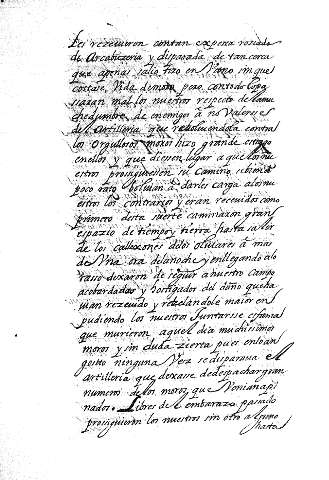 Les rezevieron contan expera roziada
de Arcabuzeria y disparada de tan cerca
que apenas salio tiro en Vano sin que
costase Vida de moro pero con todo lo
pasaran mal los nuestros respecto de tanta
chedumbre de enemigos a no Valerse
del Artilleria que reboluiendola contra
los Orgullosos moros hizo grande estrago
en ellos y que diesen lugar a que los nu
estros prosiguiesen su Camino, si bien a
poco rato boluian a darles carga a los nu
estros los contrarios y eran recevidos como
primero desta suerte caminaron gran
espazio de tiempo y tierra hasta salir
de los callexones de los oliuares a mas
de Vna ora de la noche y en llegando a lo
raso dexaron de seguir a nuestro campo
acobardados y hostigados del daño que ha
uian rezeuido y rezelandole maior en
pudiendo los nuestros Juntarse es fama
que murieron aquel dia muchissimos
moros y sin duda zierta pues en loan
gosto ninguna Vez se disparaua el
Artilleria que dexasse de despachar gran
numero de los moros que Venian api
nados. Libres del embarazo pasado
prosiguieron los nuestros sin otro alguno
hasta